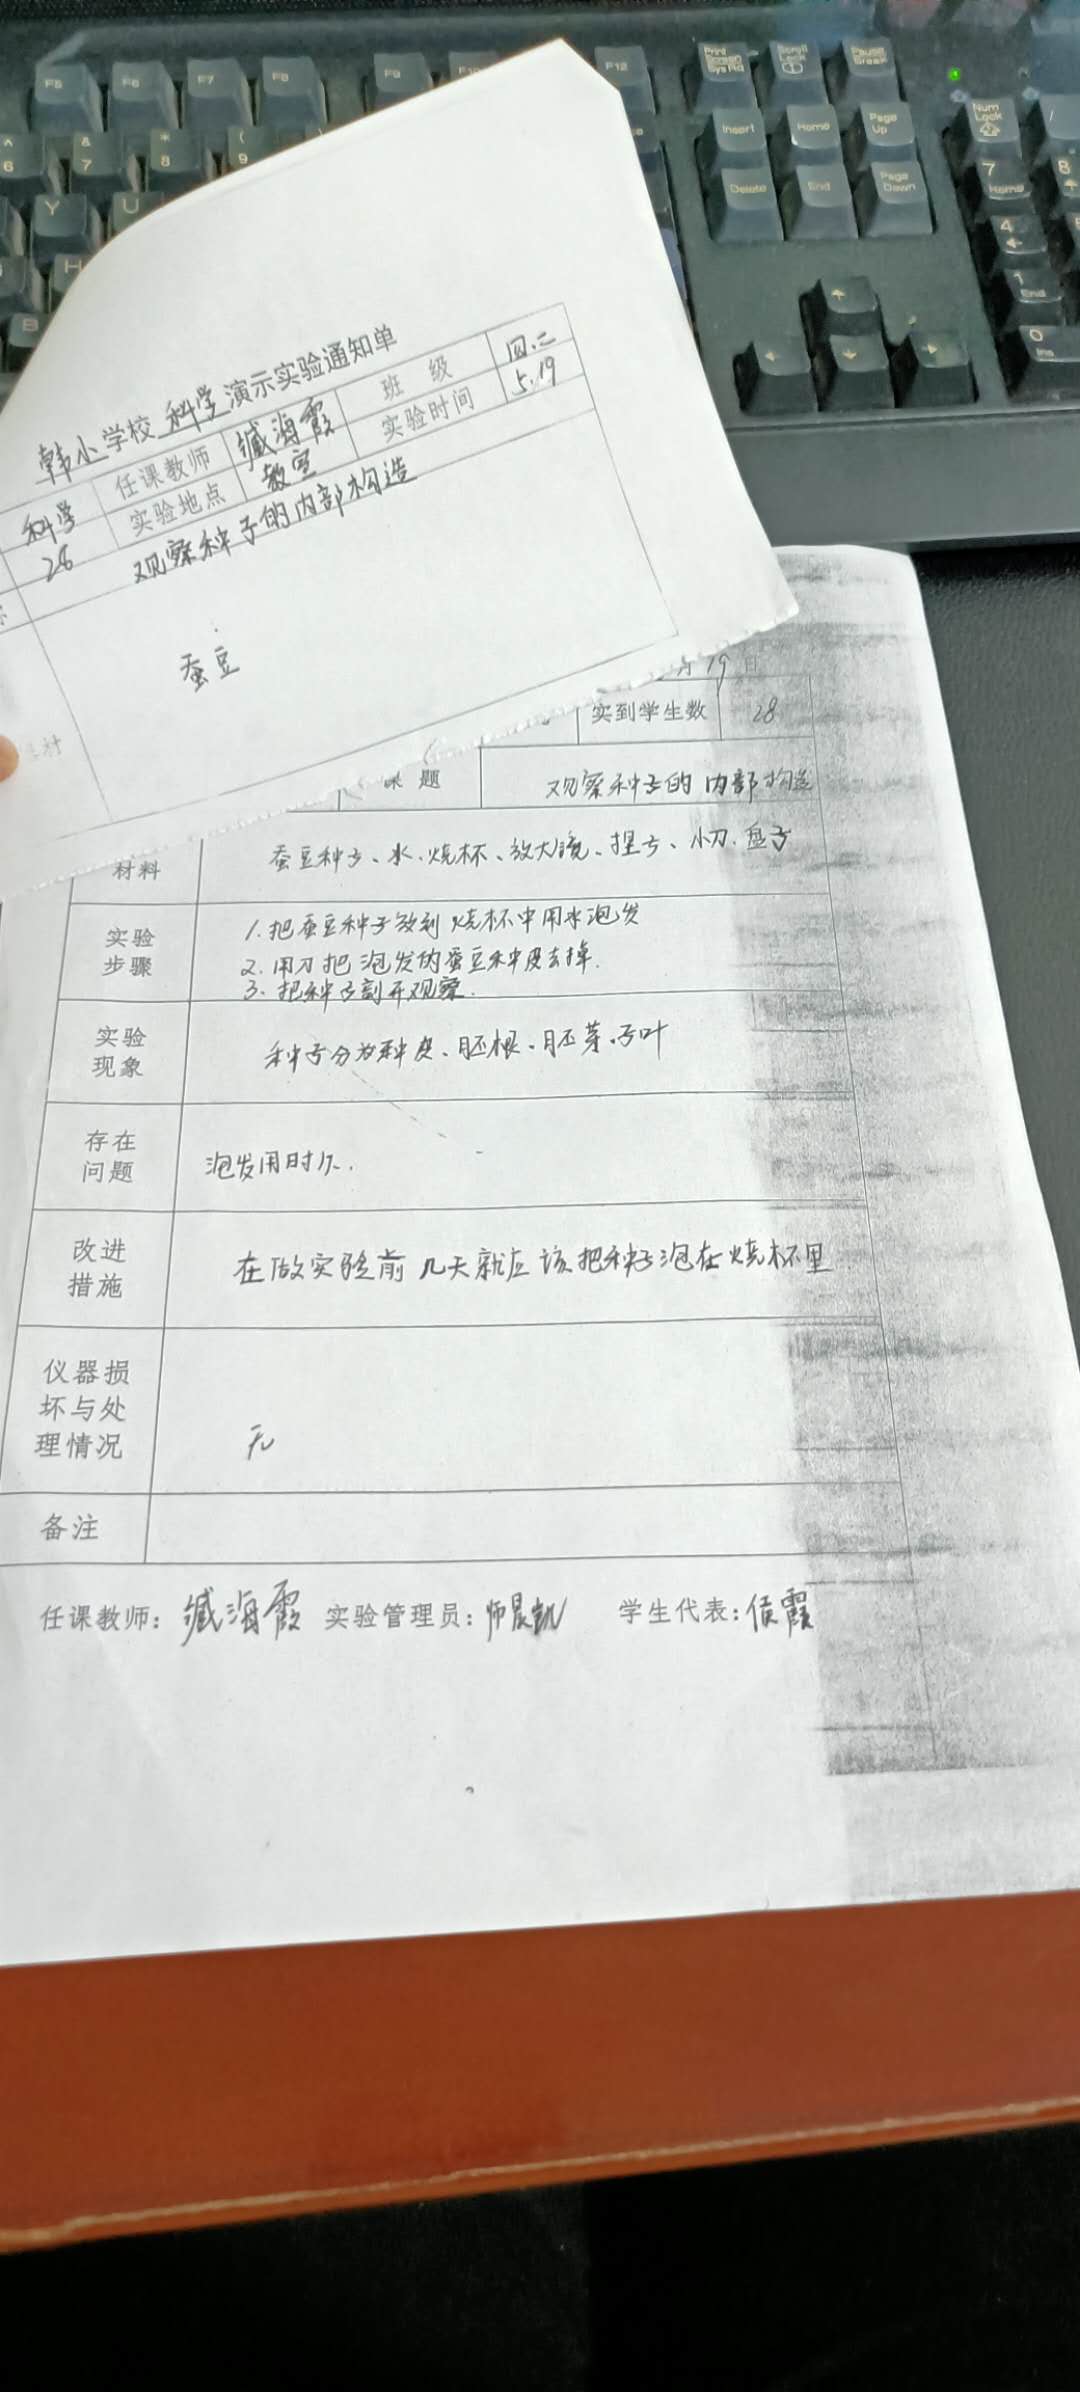 F5 F6 F7 F8 F9 F10 F12 Print Screen Sys Rq Scroll Lock Pause Break
^ 6 & 7 * 8 ( 9 Insert Home Page Up Num Lock /
Y U Delete End Page Down 7 Home 8
H 4
B 1 End
0 Ins
韩小学校科学演示实验通知单
科学 任课教师 臧海霞 班级 四.二
28 实验地点 教室 实验时间 5.19
观察种子的内部构造
蚕豆
19日
实到学生数 28
课题 观察种子的内部构造
材料 蚕豆种子、水、烧杯、放大镜、捏子、小刀、盘子
实验步骤 1.把蚕豆种子放到烧杯中用水泡发
2.用刀把泡发的蚕豆种皮去掉.
3.把种子剖开观察.
实验现象 种子分为种皮、胚根、胚芽、子叶
存在问题 泡发用时久.
改进措施 在做实验前几天就应该把种子泡在烧杯里
仪器损坏与处理情况 无
备注
任课教师：臧海霞 实验管理员：师晨凯 学生代表：侯霞